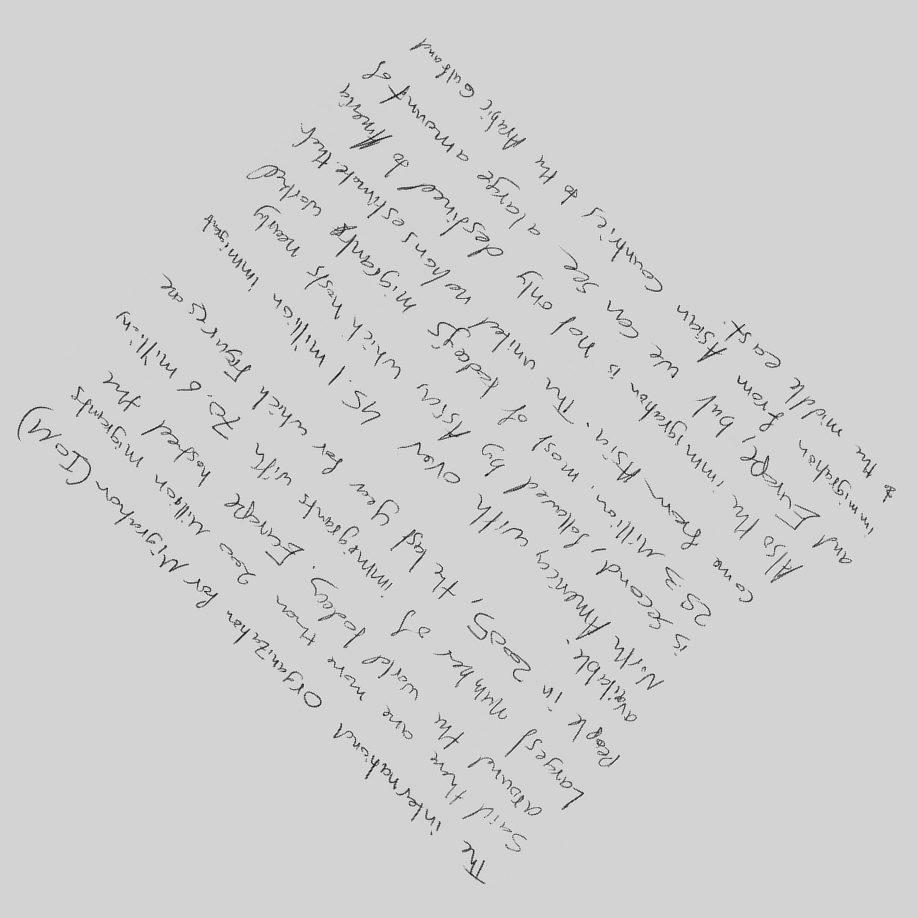 The international Organization for Migration (IOM)
Said there are more than 200 million migrants
around the world today. Europe hosted the
Largest number of immigrants with 70.6 million
People in 2005, the last year for which Figures are
available.
North America with over 45.1 million immigrant
is second, followed by Asia, which hosts nearly
25.3 million. most of today's migrants worked
come from Asia. The united nations estimate that
Also the immigration is not only destined to America
and Europe, but we can see a large amount of
immigration from Asian countries to the Arabic Gulf and
to the middle east.